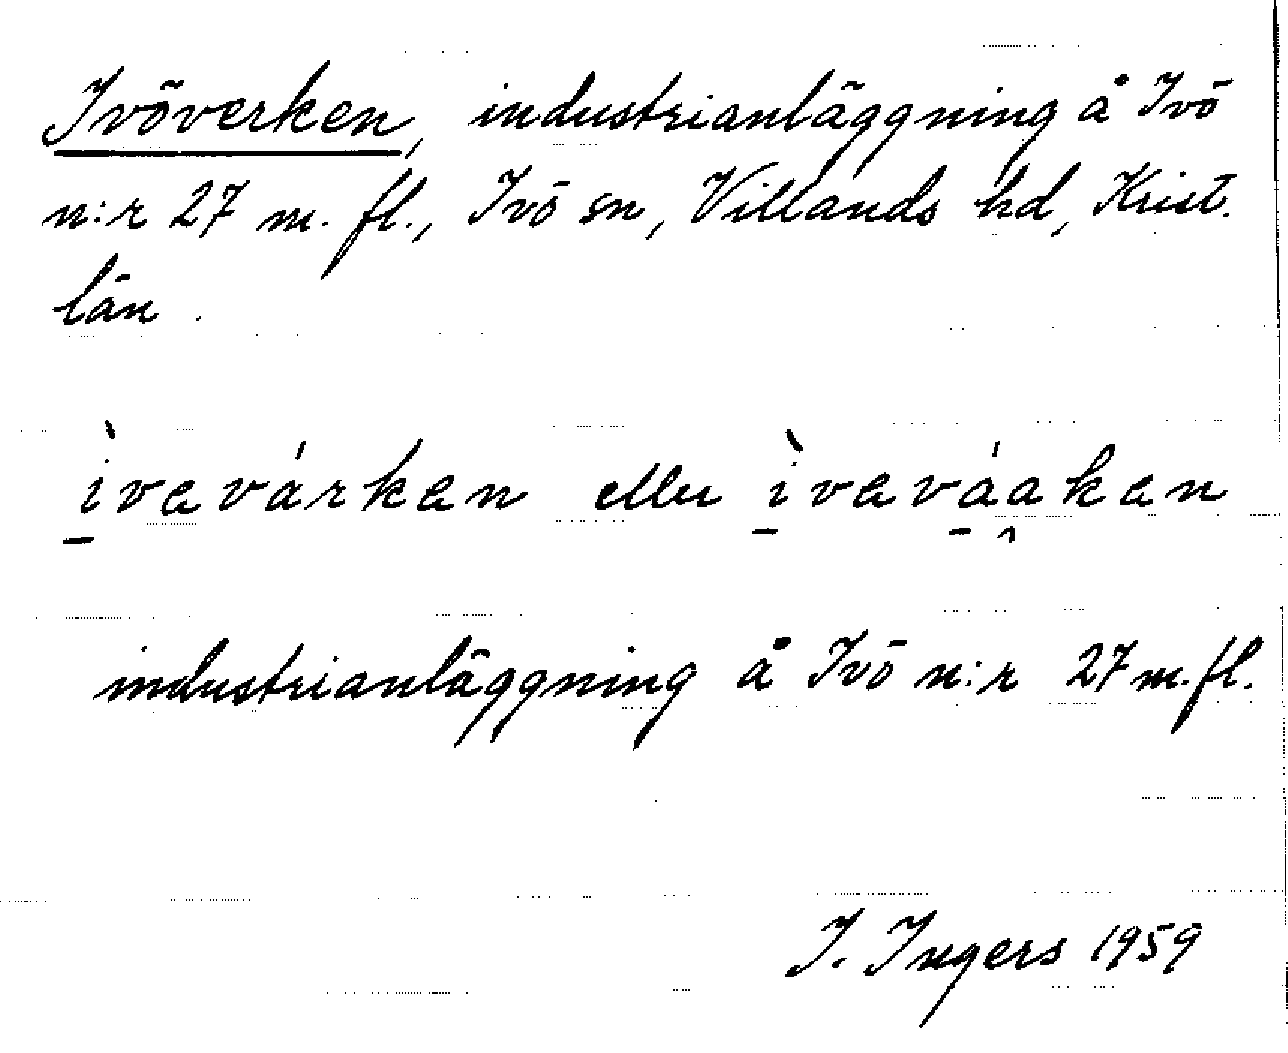 Ivöverken, industrianläggning å Ivö
n:r 27 m. fl., Ivö sn, Villands hd, Krist.
län.
ìvavárkan eller ìvaváakan
industrianläggning å Ivö n:r 27 m. fl.
I. Ingers 1959